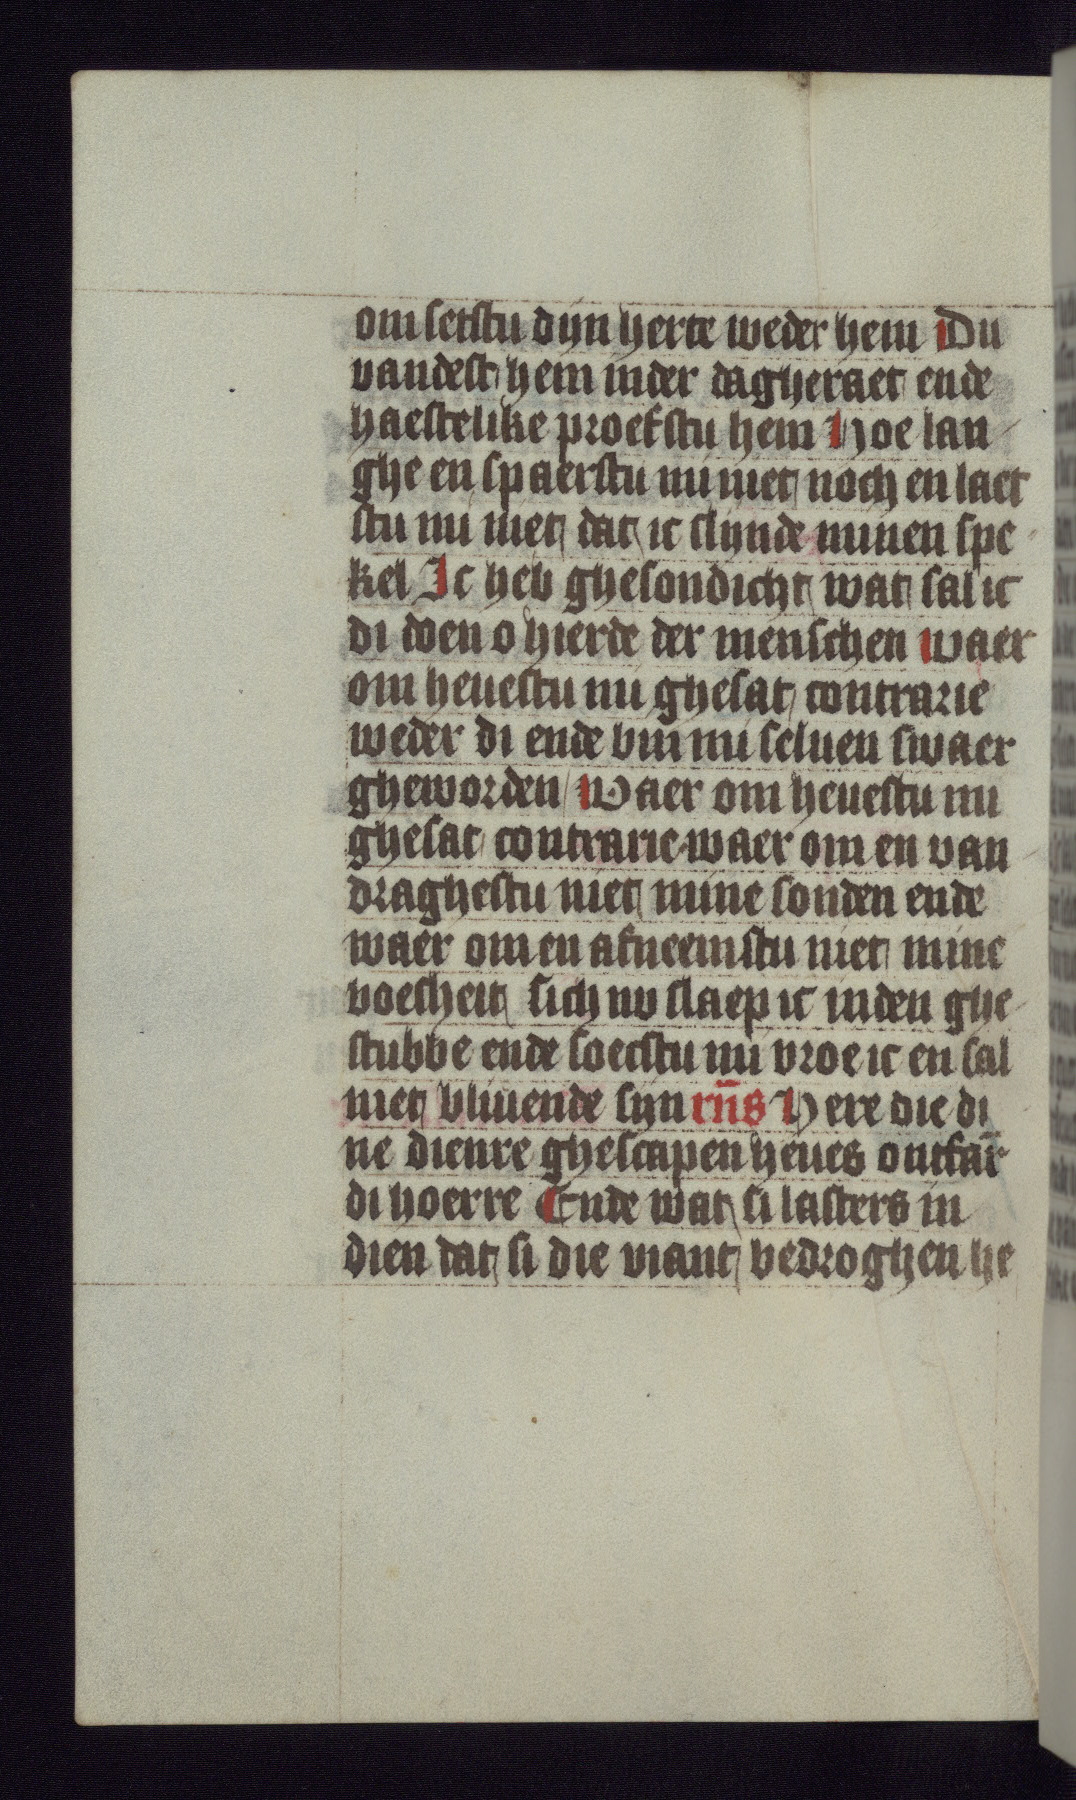 om setstu dijn herte weder hem Du
vandest hem inder dagheraet ende
haestelike proefstu hem Hoe lan
ghe en spaerstu mi niet noch en laet
stu mi niet dat ic slijnde minen spe
kel Ic heb ghesondicht wat sal ic
di doen o hierde der menschen waer
om hevestu mi ghesat contrarie
weder di ende bin mi seluen swaer
gheworden Waer om heuestu mi
ghesat contrarie waer om en van
draghestu niet mine sonden ende
waer om en afneemstu niet mine
boesheit sich nv slaep ic inden ghe
stubbe ende soecstu mi vroe ic en sal
niet bliuende sijn rn̄s Here die di
ne dienre ghescapen heues ontfar̄
di hoerre Ende wat si lasters in
dien dat si die viant bedroghen he